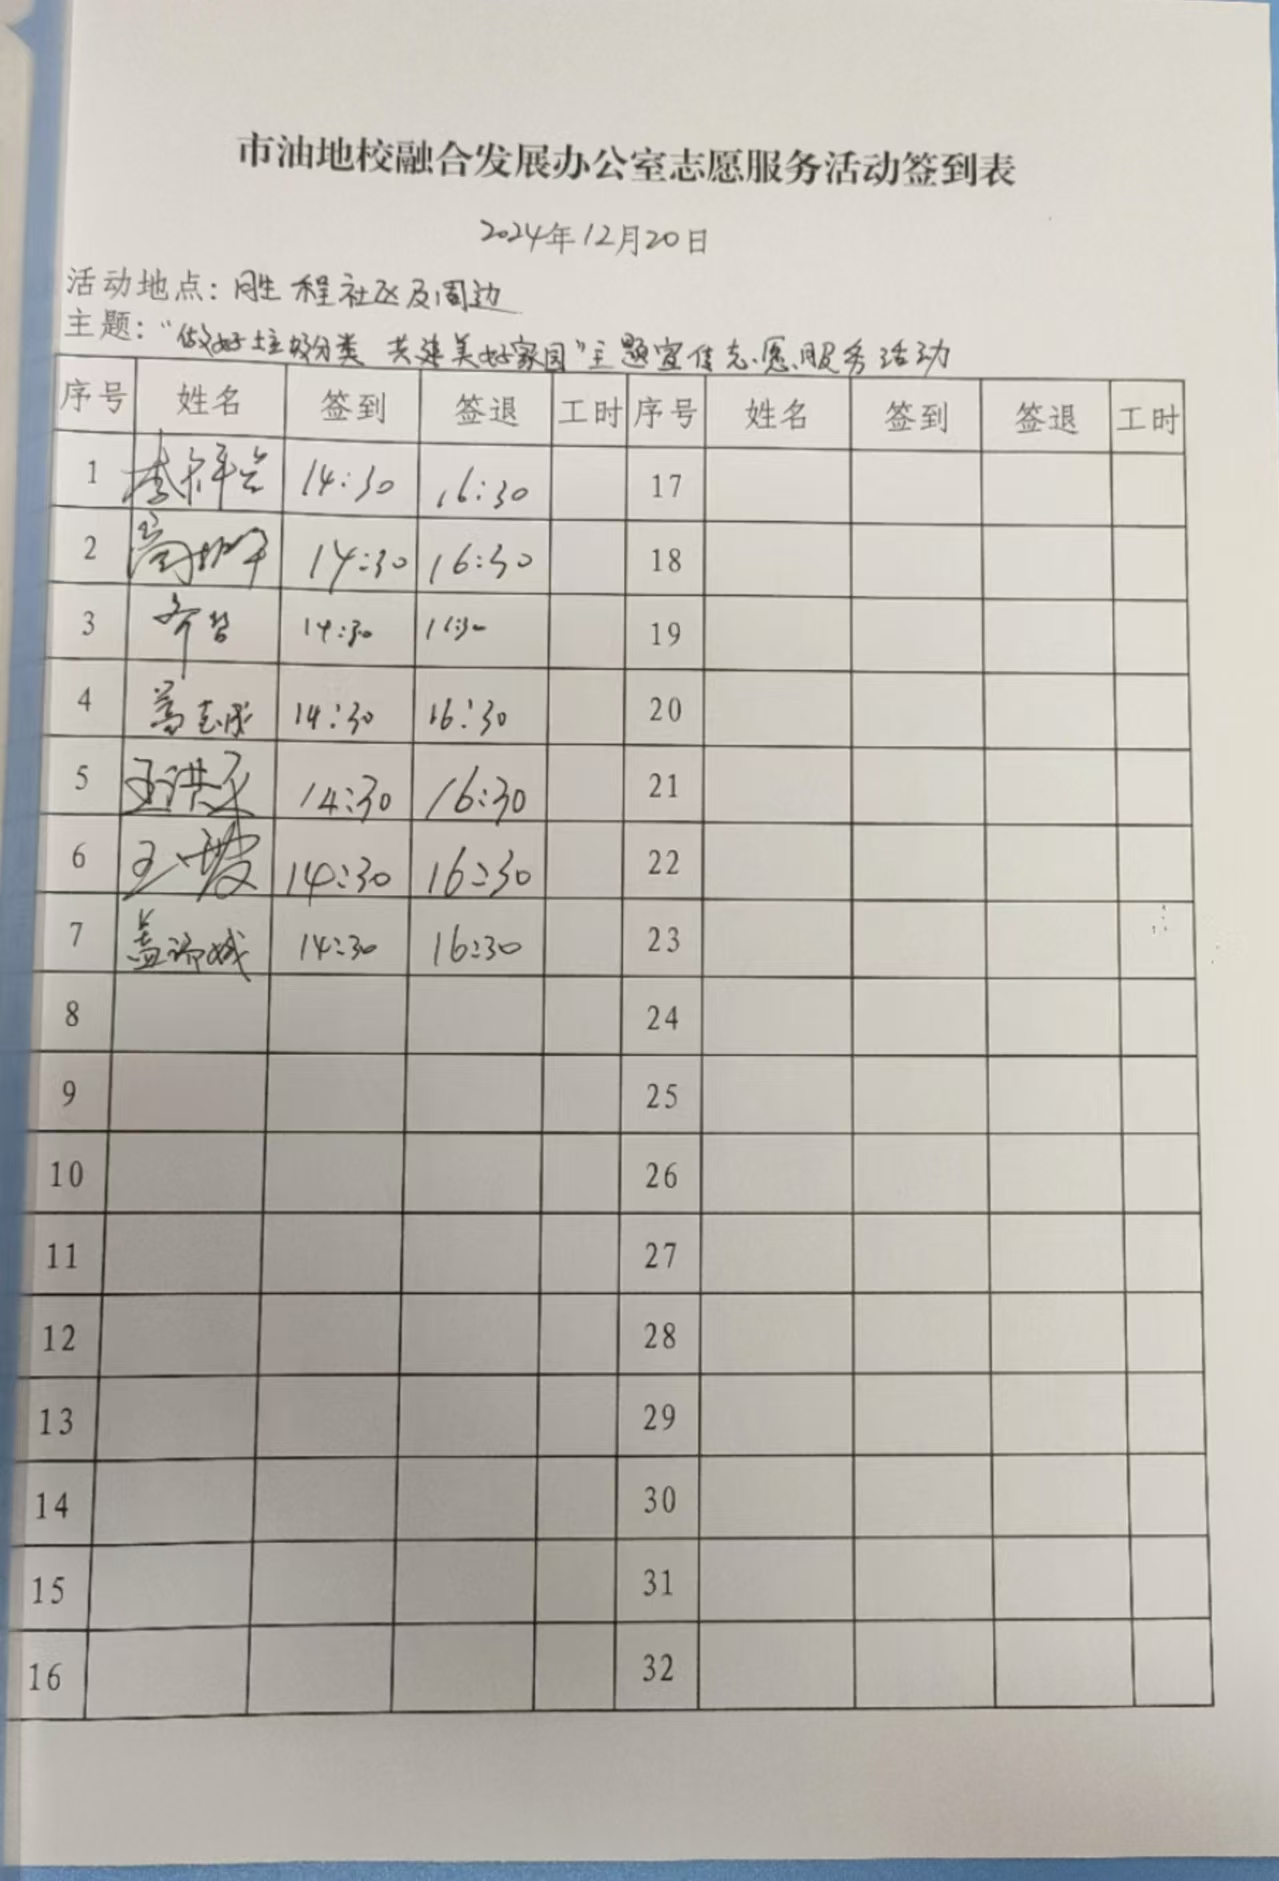 市油地校融合发展办公室志愿服务活动签到表
2024年12月20日
活动地点：胜程社区及周边
主题："做好垃圾分类 共建美好家园"主题宣传志愿服务活动
序号 姓名 签到 签退 工时 序号 姓名 签到 签退 工时
1 14:30 16:30 17
2 14:30 16:30 18
3 14:30 16:30 19
4 14:30 16:30 20
5 王洪 14:30 16:30 21
6 王 14:30 16:30 22
7 盖 城 14:30 16:30 23
8 24
9 25
10 26
11 27
12 28
13 29
14 30
15 31
16 32